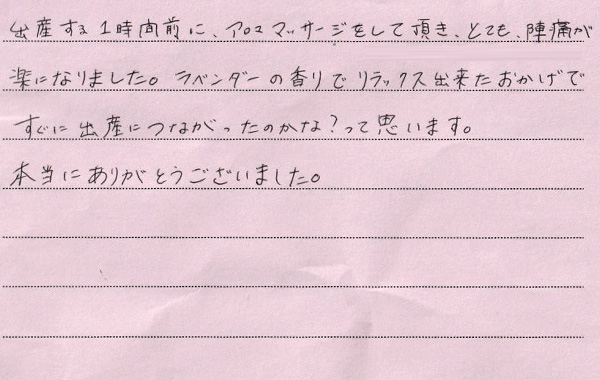 出産する1時間前に、アロママッサージをして頂き、とても、陣痛が
楽になりました。ラベンダーの香りでリラックス出来たおかげで
すぐに出産につながったのかな?って思います。
本当にありがとうございました。